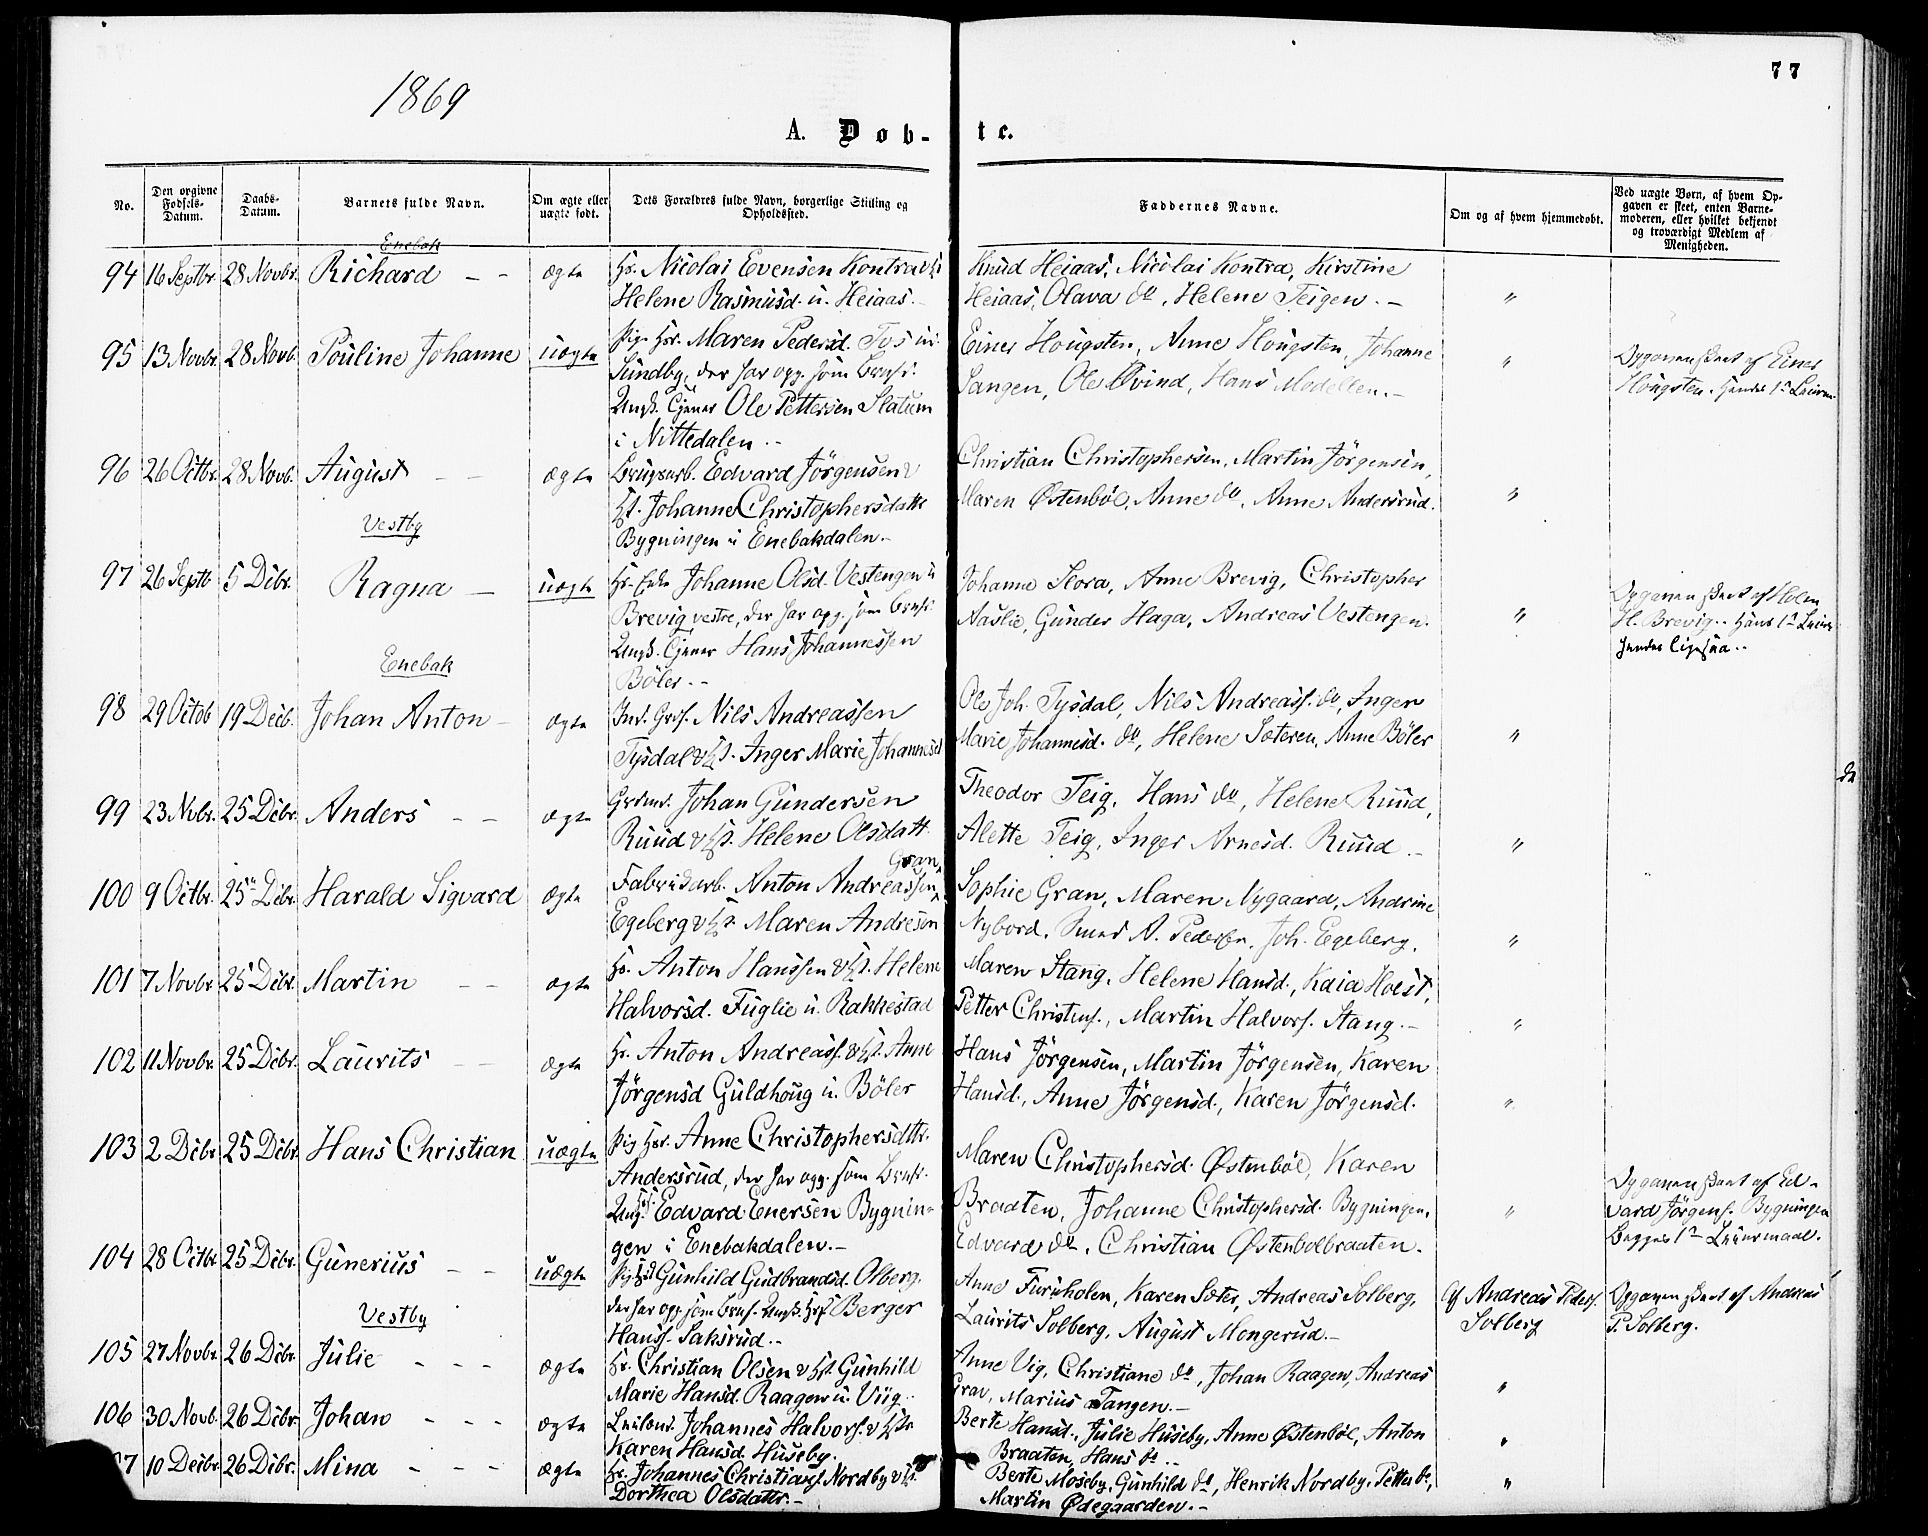 77
1869
A. Døb-
te.
No.
Den opgivne Fødsels-Datum.
Daabs-Datum.
Barnets fulde Navn.
Om ægte eller uægte født.
Dets Forældres fulde Navn, borgerlige Stilling og Opholdssted.
Faddernes Navne.
Om og af hvem hjemmedøbt.
Ved uægte Børn, af hvem Opgaven er skeet, enten Barnemoderen, eller hvilket bekjendt og troværdigt Medlem af Menigheden.
Enebak
94 16 Septbr. 28 Novbr. Richard - - ægte
Hr. Nicolai Evensen Kontra v. H.
Helene Rasmusd. u. Heiaas.
Knud Heiaas, Nicolai Kontra, Kirstine
Heiaas, Olava do, Helene Teigen. -
"
95 13 Novbr. 28 Novb. Pouline Johanne uægte
Pig. Hr. Maren Pedersd.
Sundby, der har opg. som Barnf.
Ungk. Tjener Ole Pettersen Slatum
i Nittedalen. -
Einer Hougsten, Anne Hougsten, Johanne
Langen, Ole Øvind, Hans Modellen. -
"
Opgaven skeet af Einer
Hougsten. Hendes 1ste Leierm.
96 26 Octbr. 28 Novb. August - - ægte
Brugsarb. Edvard Jörgensen v
H. Johanne Christophersdatter
Bygningen i Enebakdalen. -
Christian Christophersen, Martin Jörgensen,
Maren Østenböl, Anne do, Anne Andersrud.
"
Vestby
97 26 Septb 5 Dcbr. Ragna - uægte
Hr. Enke Johanne Olsd. Vestengen u
Brevig vestre, der har opg. som Barnf.
Ungk. Tjener Hans Johannessen
Böler. -
Johanne Slora, Anne Brevig, Christopher
Aaslie, Gunder Haga, Andreas Vestengen.
"
Opgaven skeet af
H. Brevig. Hans 1ste Leierm.
hendes ligesaa.
Enebak
98 29 Octob 19 Decb. Johan Anton - ægte
Ind. Grf. Nils Andreassen
Tysdal v H. Inger Marie Johannesd
Ole Joh. Tysdal, Nils Andreass. do, Inger
Marie Johannesd. do, Helene Sæteren, Anne Böler
"
99 23 Nvbr. 25 Dcbr. Anders - - ægte
Grdmd. Johan Gundersen
Ruud v H. Helene Olsdatt.
Theodor Teig, Hans do, Helene Ruud,
Alette Teig, Inger Arnesd. Ruud -
"
100 9 Octbr. 25 Dcbr. Harald Sigvard ægte
Fabrikarb. Anton Andreassen Gran
Egeberg v H. Maren Andresen
Sophie Gran, Maren Nygaard, Andrine
Nybord, A. Pedersen, Joh. Egeberg.
"
101 7 Novbr. 25 Dcbr. Martin - - ægte
Hr. Anton Hanssen v H. Helene
Halvorsd. Fuglie u. Rakkestad
Maren Stang, Helene Hansd., Kaia Holst,
Petter Christens., Martin Halvors. Stang. -
"
102 11 Novbr. 25 Dcbr. Laurits - - ægte
Hr. Anton Andreass. v H. Anne
Jörgensd Guldhoug u. Böler
Hans Jörgensen, Martin Jörgensen, Karen
Hansd., Anne Jörgensd., Karen Jörgensd.
"
103 2 Dcbr. 25 Dcbr. Hans Christian uægte
Pig. Hr. Anne Christophersdtr.
Andersrud, der har opg. som Barnf.
Ungk. Edvard Enersen Bygnin-
gen i Enebakdalen. -
Maren Christophersd. Østenböl, Karen
Braaten, Johanne Christophersd. Bygningen,
Edvard do, Christian Østenbolbraaten.
"
Opgaven skeet af Ed-
vard Jörgens. Bygningen
Begges 1ste Leiermaal.
104 28 Octbr 25 Dcbr. Gunerius - - uægte
Pig. Gunhild Gudbrandsd. Olberg,
der har opg. som Barnf. Ungk. Berger
Hanss. Saksrud. -
Anne Furuholen, Karen Sæter, Andreas Solberg,
Laurits Solberg, August Mongerud. -
Af Andreas Peders.
Solberg
Opgaven skeet af Andreas
P. Solberg.
Vestby
105 27 Novbr. 26 Dcbr. Julie - - - ægte
Hr. Christian Olsen v H. Gunhild
Marie Hansd. Raagen u. Viig.
Anne Vig, Christiane do, Johan Raagen, Andreas
Grav, Marius Tangen. -
"
106 30 Novb. 26 Dcbr. Johan - - - ægte
Leilend. Johannes Halvors. v H.
Karen Hansd. Huseby.
Berte Hansd., Julie Huseby, Anne Østenböl, Anton
Braaten, Hans do. -
"
7 10 Decbr. 26 Dcbr. Mina - - - ægte
Hr. Johannes Christians. Nordby v H.
Dorthea Olsdatr. -
Berte Moseby, Gunhild do, Henrik Nordby, Petter do,
Martin Ødegaarden. -
"